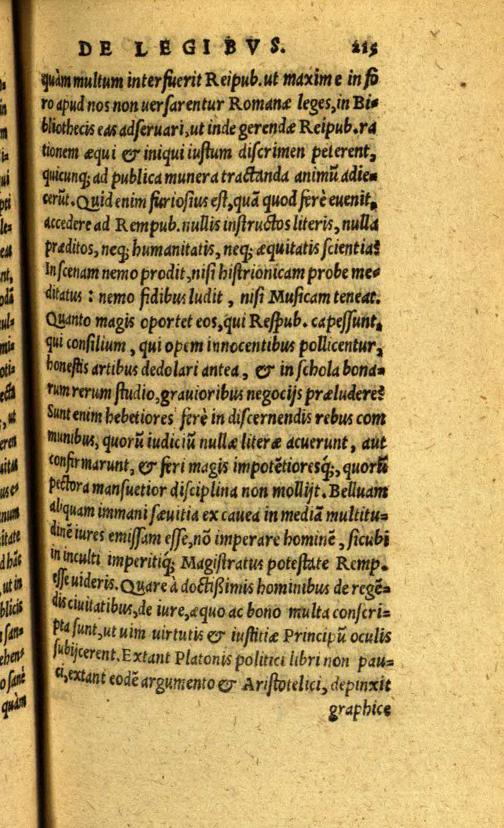 DE LEGIBVS. 215
quàm multum interfuerit Reipub. ut maxime in fo
ro apud nos non uersarentur Romanæ leges, in Bi=
bliothecis eas adseruari, ut inde gerendæ Reipub. ra
tionem æqui & iniqui iustum discrimen peterent,
quicunq; ad publica munera tractanda animū adie=
cerūt. Quid enim furiosius est, quā quod ferè euenit,
accedere ad Rempub. nullis instructos literis, nulla
præditos, neq; humanitatis, neq; æquitatis scientia?
In scenam nemo prodit, nisi histrionicam probe me=
ditatus : nemo fidibus ludit , nisi Musicam teneat.
Quanto magis oportet eos, qui Respub. capessunt,
qui consilium , qui opem innocentibus pollicentur,
honestis artibus dedolari antea, & in schola bona=
rum rerum studio, grauioribus negocijs præludere?
Sunt enim hebetiores ferè in discernendis rebus com
munibus, quorū iudiciū nullæ literæ acuerunt, aut
confirmarunt, & feri magis impotētioresq;, quorū
pectora mansuetior disciplina non mollijt. Belluam
aliquam immani sæuitia ex cauea in mediā multitu=
dinē iures emissam esse, nō imperare hominē, sicubi
in inculti imperitiq; Magistratus potestate Remp.
esse uideris. Quare à doctißimis hominibus de regē=
dis ciuitatibus, de iure, æquo ac bono multa conscri=
pta sunt, ut uim uirtutis & iustitiæ Principū oculis
subijcerent. Extant Platonis politici libri non pau=
ci, extant eodē argumento & Aristotelici, depinxit
graphice